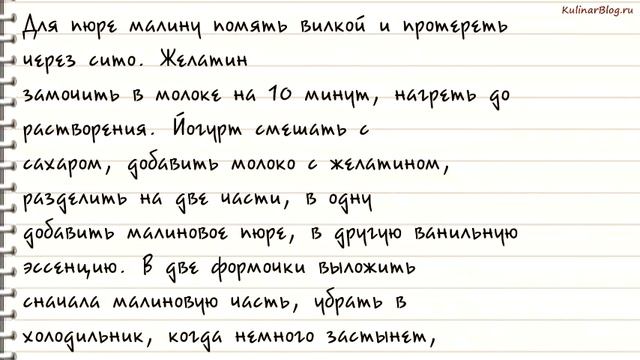 KulinarBlog.ru
Для пюре малину помять вилкой и протереть
через сито. Желатин
замочить в молоке на 10 минут, нагреть до
растворения. Йогурт смешать с
сахаром, добавить молоко с желатином,
разделить на две части, в одну
добавить малиновое пюре, в другую ванильную
эссенцию. В две формочки выложить
сначала малиновую часть, убрать в
холодильник, когда немного застынет,